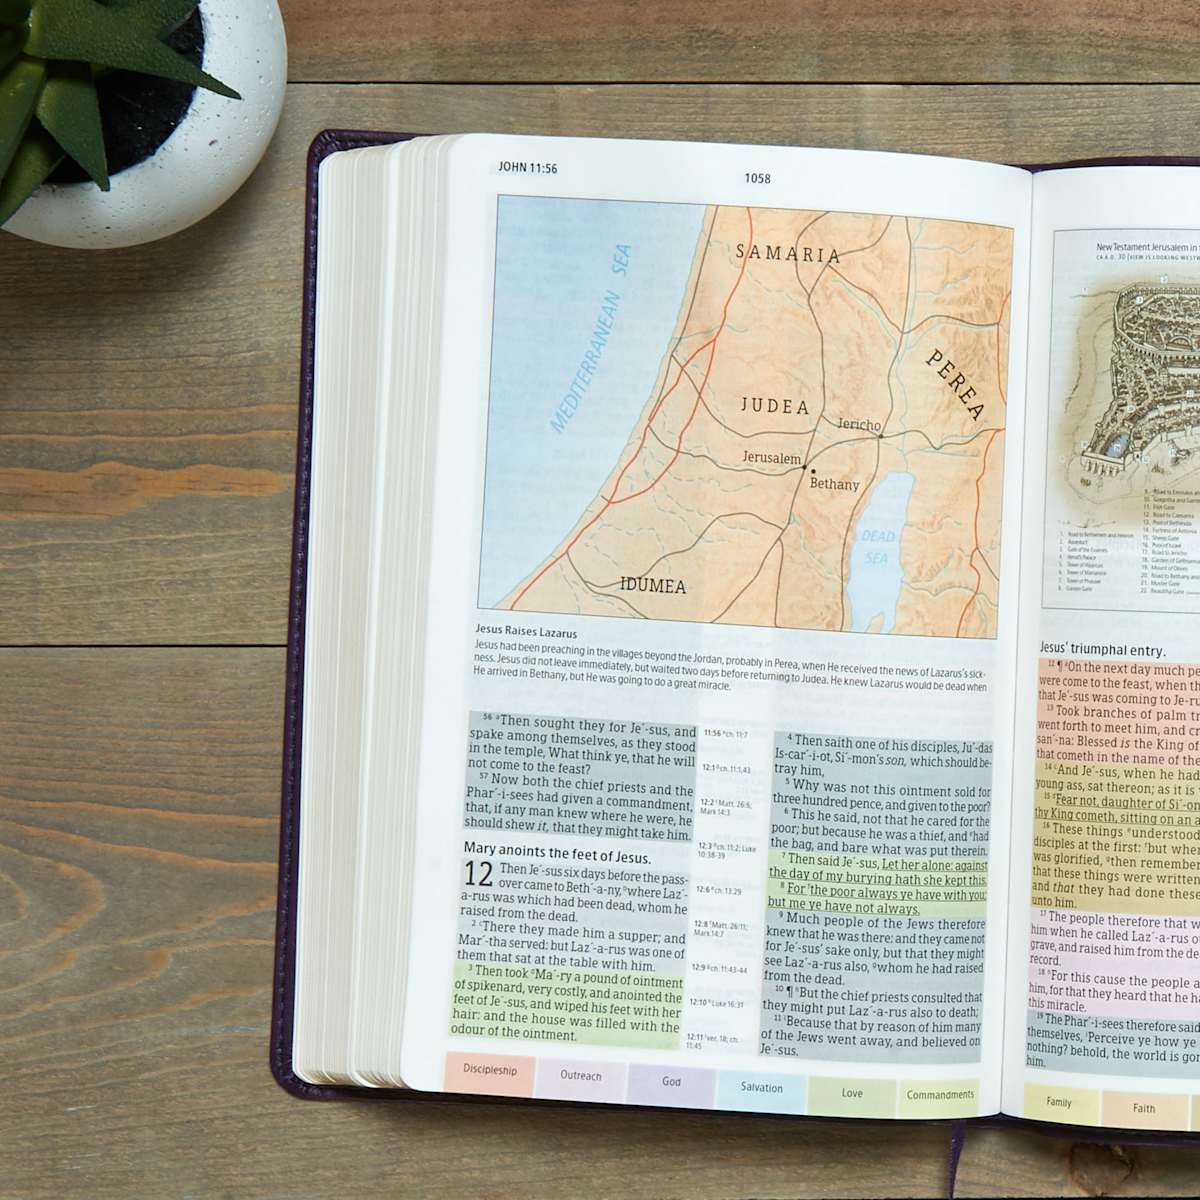 JOHN 11:56
1058
SAMARIA
MEDITERRANEAN SEA
PEREA
JUDEA
Jericho
Jerusalem
Bethany
DEAD
SEA
IDUMEA
Jesus Raises Lazarus
Jesus had been preaching in the villages beyond the Jordan, probably in Perea, when He received the news of Lazarus's sick-
ness. Jesus did not leave immediately, but waited two days before returning to Judea. He knew Lazarus would be dead when
He arrived in Bethany, but He was going to do a great miracle.
56 Then sought they for Je´-sus, and
spake among themselves, as they stood
in the temple, What think ye, that he will
not come to the feast?
57 Now both the chief priests and the
Phar´-i-sees had given a commandment,
that, if any man knew where he were, he
should shew it, that they might take him.
Mary anoints the feet of Jesus.
12 Then Je´-sus six days before the pass-
over came to Beth´-a-ny, where Laz´-
a-rus was which had been dead, whom he
raised from the dead.
2 There they made him a supper; and
Mar´-tha served: but Laz´-a-rus was one of
them that sat at the table with him.
3 Then took Ma´-ry a pound of ointment
of spikenard, very costly, and anointed the
feet of Je´-sus, and wiped his feet with her
hair: and the house was filled with the
odour of the ointment.
11:56 ch. 11:7
12:1 ch. 11:1,43
12:2 Matt. 26:6;
Mark 14:3
12:3 ch. 11:2; Luke
10:38-39
12:6 ch. 13:29
12:8 Matt. 26:11;
Mark 14:7
12:9 ch. 11:43-44
12:10 Luke 16:31
12:11 ver. 18; ch.
11:45
4 Then saith one of his disciples, Ju´-das
Is-car´-i-ot, Si´-mon's son, which should be-
tray him,
5 Why was not this ointment sold for
three hundred pence, and given to the poor?
6 This he said, not that he cared for the
poor; but because he was a thief, and had
the bag, and bare what was put therein.
7 Then said Je´-sus, Let her alone: against
the day of my burying hath she kept this.
8 For the poor always ye have with you;
but me ye have not always.
9 Much people of the Jews therefore
knew that he was there: and they came not
for Je´-sus' sake only, but that they might
see Laz´-a-rus also, whom he had raised
from the dead.
10 ¶ But the chief priests consulted that
they might put Laz´-a-rus also to death;
11 Because that by reason of him many
of the Jews went away, and believed on
Je´-sus.
Discipleship
Outreach
God
Salvation
Love
Commandments
New Testament Jerusalem in
CA A.D. 30 (VIEW IS LOOKING
Jesus' triumphal entry.
12 ¶ On the next day much
were come to the feast, when
that Je´-sus was coming to
13 Took branches of palm
went forth to meet him, and
san´-na: Blessed is the King of
that cometh in the name of the
14 And Je´-sus, when he had
young ass, sat thereon; as it is
15 Fear not, daughter of
thy King cometh, sitting on an
16 These things understood
disciples at the first: but when
was glorified, then
that these things were written
and that they had done these
unto him.
17 The people therefore that
him when he called Laz´-a-rus
grave, and raised him from the
record.
18 For this cause the people
him, for that they heard that he
this miracle.
19 The Phar´-i-sees therefore said
themselves, Perceive ye how ye
nothing? behold, the world is
him.
Family
Faith